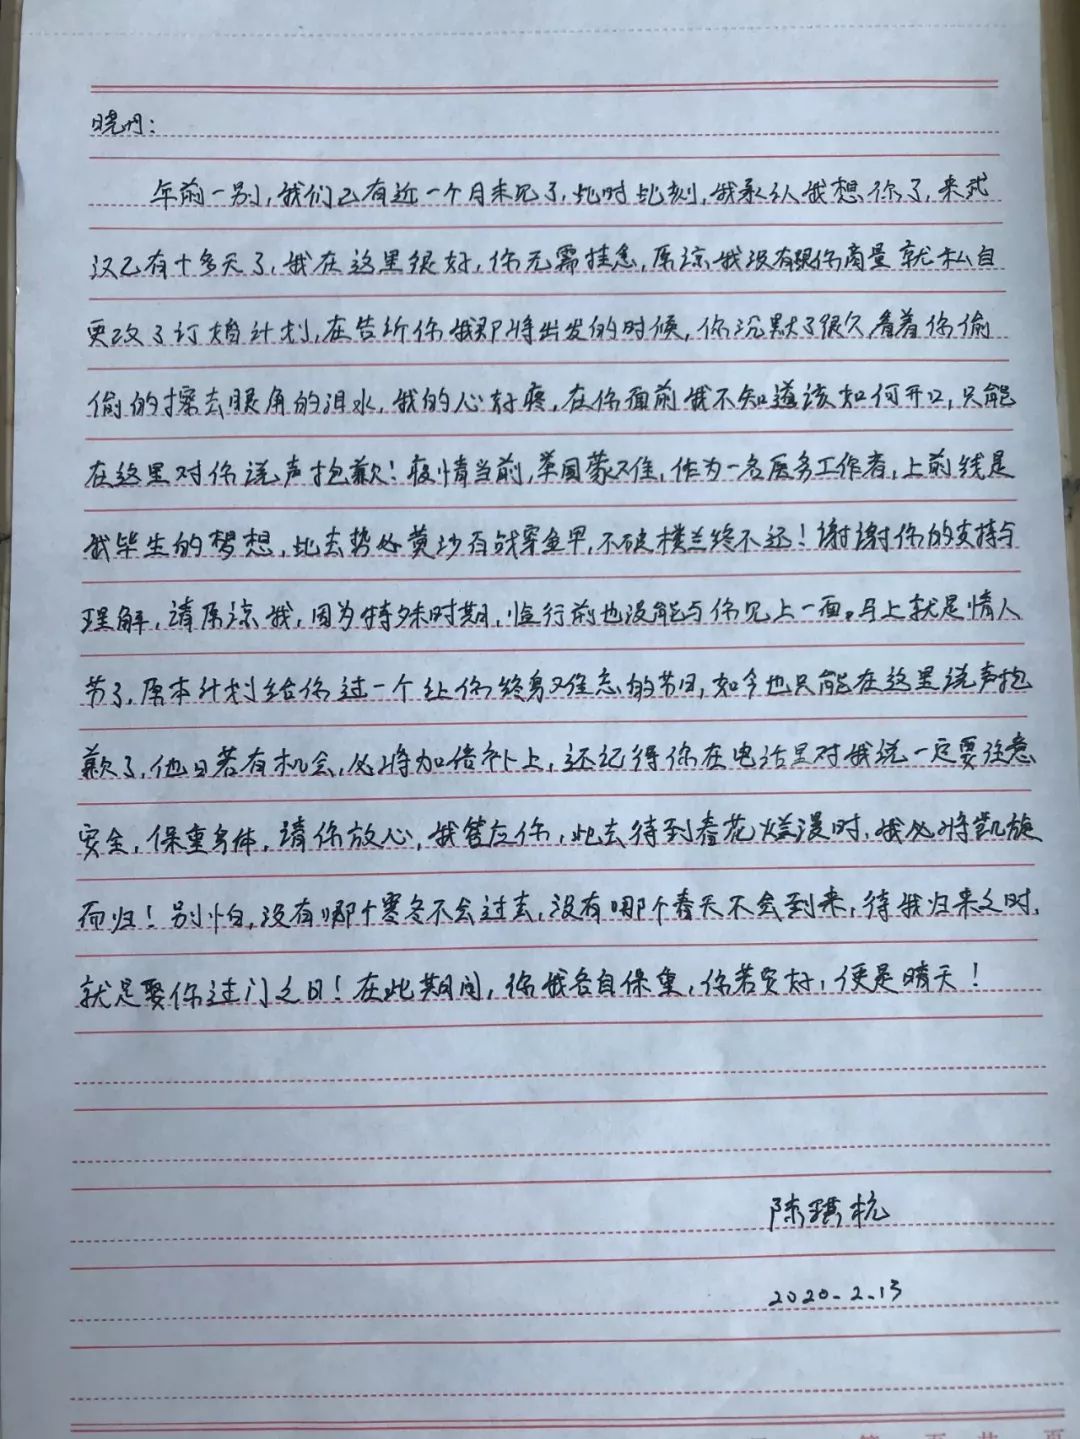 晓丹：
年前一别，我们已有近一个月未见了，此时此刻，我承认我想你了，来武
汉已有十多天了，我在这里很好，你无需挂念，原谅我没有跟你商量就私自
更改了订婚计划，在告诉你我即将出发的时候，你沉默了很久，看着你偷
偷的擦去眼角的泪水，我的心好疼，在你面前我不知道该如何开口，只能
在这里对你说声抱歉！疫情当前，英国蒙难，作为一名医务工作者，上前线是
我毕生的梦想，此去势必黄沙百战穿金甲，不破楼兰终不还！谢谢你的支持与
理解，请原谅我，因为特殊时期，临行前也没能与你见上一面。马上就是情人
节了，原本计划给你过一个让你终身难忘的节日，如今也只能在这里说声抱
歉了，他日若有机会，必将加倍补上，还记得你在电话里对我说一定要注意
安全，保重身体，请你放心，我答应你，此去待到春花烂漫时，我必将凯旋
而归！别怕，没有哪个寒冬不会过去，没有哪个春天不会到来，待我归来之时，
就是娶你过门之日！在此期间，你我各自保重，你若安好，便是晴天！
陈琪杭
2020-2-13